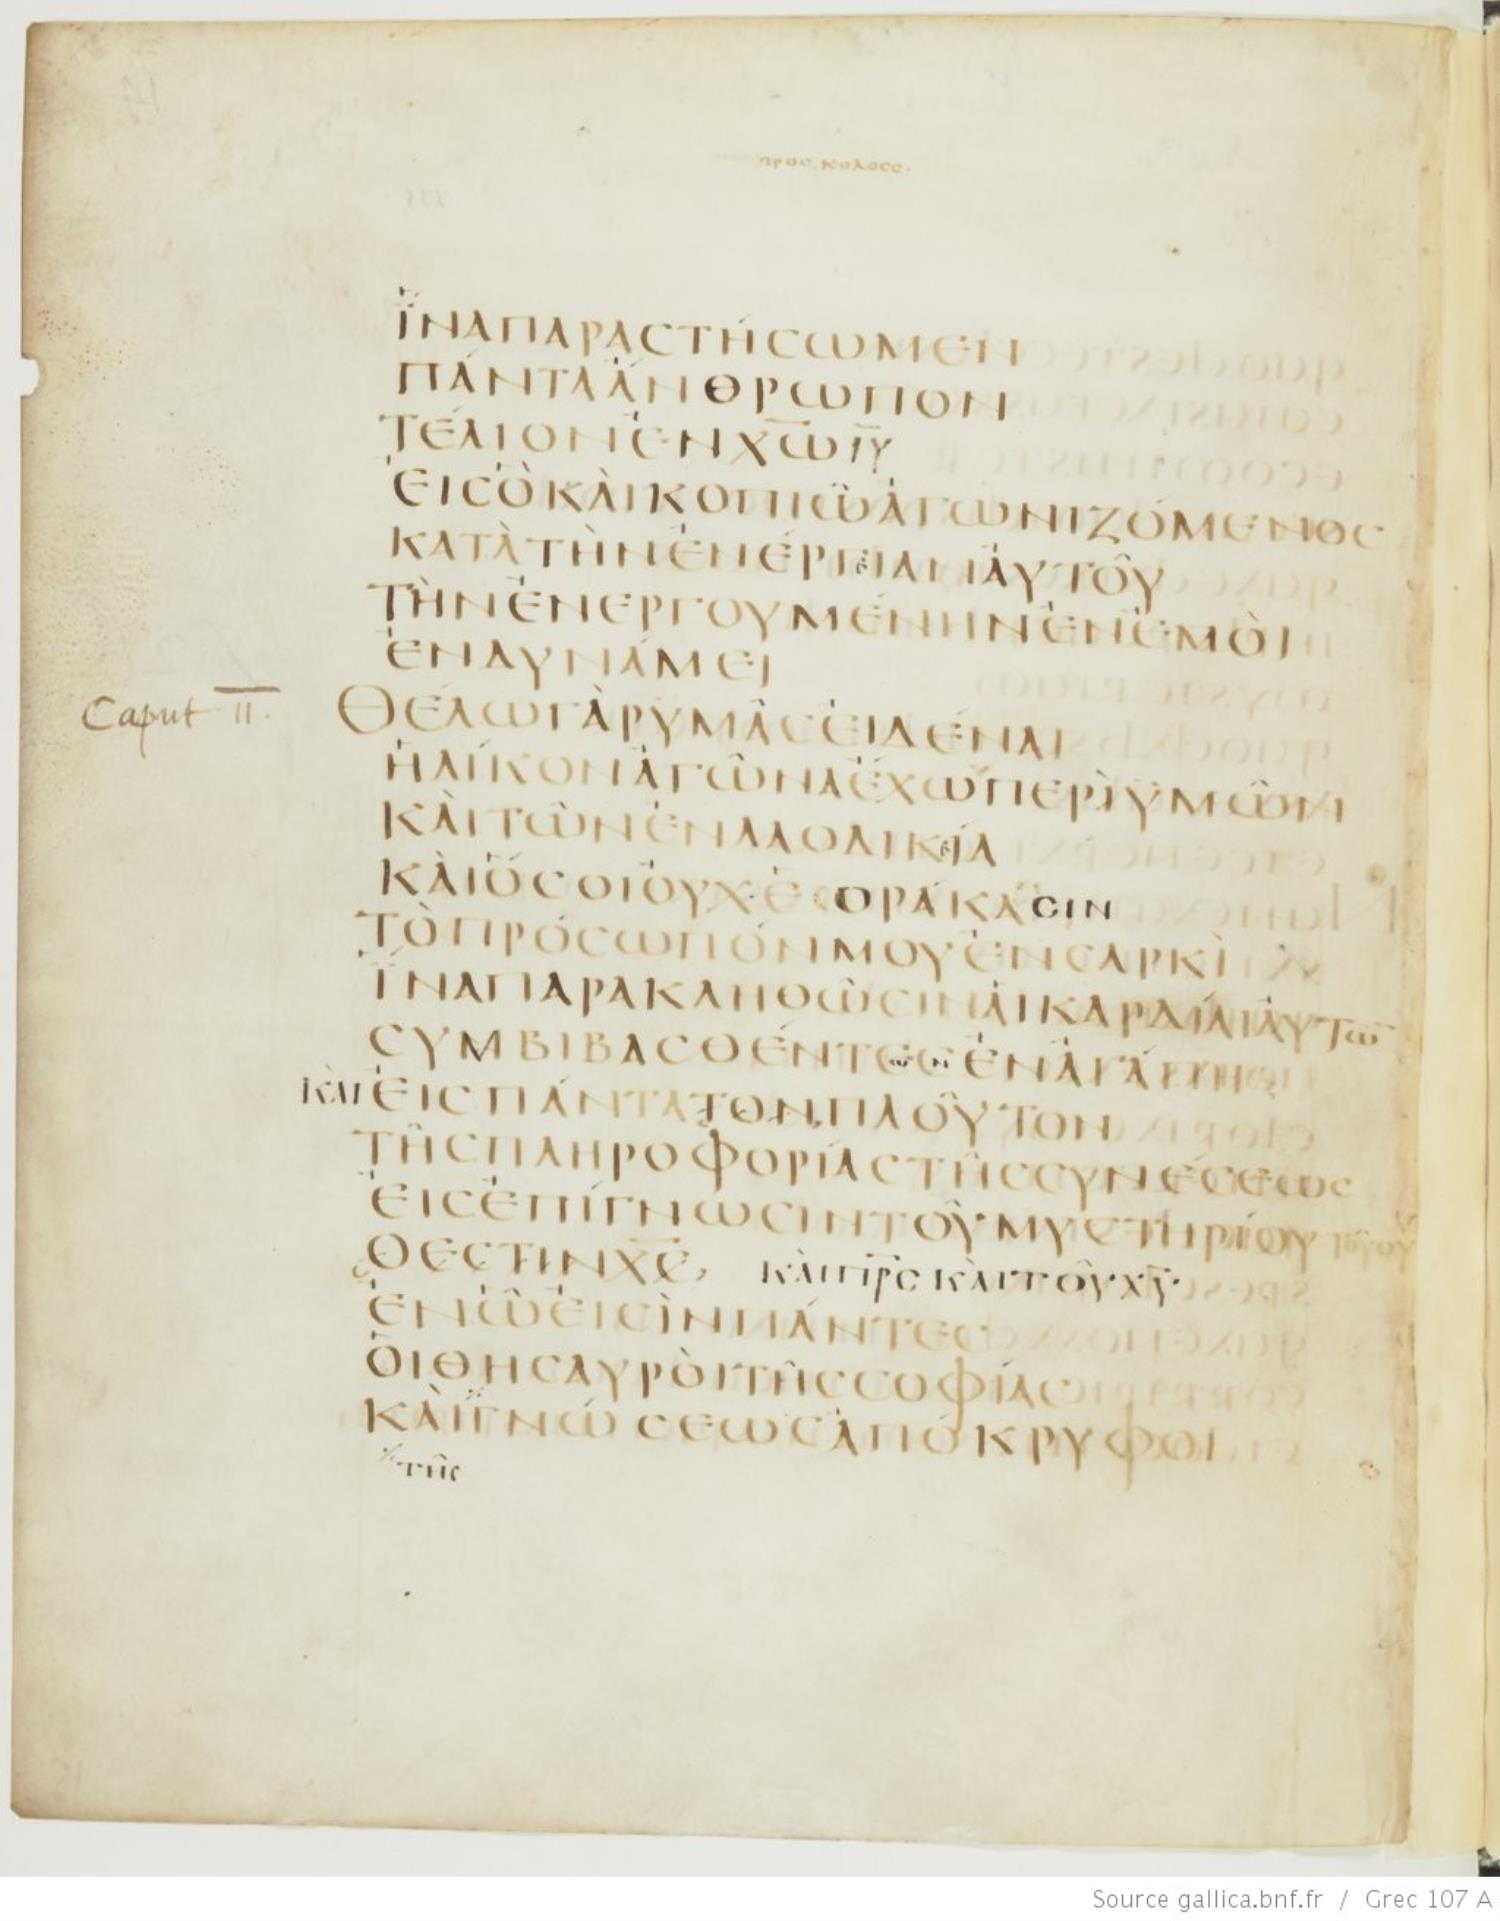 προς κολοσς.
ἵΝΑΠΑΡΑϹΤΉϹΩΜΕΝ
ΠΆΝΤΑἈΝΘΡΩΠΟΝ
ΤΈΛΙΟΝἘΝΧ̅Ω̅ Ι̅Υ̅
ἘΙϹὋΚᾺΙΚΟΠΙΩ͂ἈΓΩΝΙΖΌΜΕΝΟϹ
ΚΑΤᾺΤῊΝἘΝΈΡΓΕΙΑΝἈΥΤΟΥ͂
ΤῊΝἘΝΕΡΓΟΥΜΈΝΗΝἘΝἘΜῸΙ
ἘΝΔΥΝΆΜΕΙ
Caput II.
ΘΈΛΩΓᾺΡΥΜΑ͂ϹἘΙΔΈΝΑΙ
ἩΛΊΚΟΝἈΓΩ͂ΝΑἜΧΩΠΕΡῚΫΜΩ͂Ν
ΚᾺΙΤΩ͂ΝἘΝΛΑΟΔΙΚΕΊΑ
ΚᾺΙὍϹΟΙὈΥΧἙΟΡΆΚΑϹΙΝ
ΤῸΠΡΌϹΩΠΌΝΜΟΥἘΝϹΑΡΚῚ
ἽΝΑΠΑΡΑΚΛΗΘΩ͂ϹΙΝἈΙΚΑΡΔΊΑΙἈΥΤΩ͂
ϹΥΜΒΙΒΑϹΘΈΝΤΕϹ ων ἘΝἈΓΆΠΗ
ΚᾺΙ ἘΙϹΠΆΝΤΑΤΟΝΠΛΟΥ͂ΤΟΝ
ΤΗ͂ϹΠΛΗΡΟΦΟΡΊΑϹΤΗ͂ϹϹΥΝΈϹΕΩϹ
ἘΙϹἘΠΊΓΝΩϹΙΝΤΟΥ͂ΜΥϹΤΗΡΊΟΥ
ΘΕϹΤΙΝΧ̅Ϲ̅, ΚᾺΙΠ̅Ρ̅Ϲ ΚᾺΙΤΟΥ͂Χ̅Υ̅·
ἘΝΩ͂ἘΙϹῚΝΠΆΝΤΕϹ
ὉΙΘΗϹΑΥΡῸΙΤΗ͂ϹϹΟΦΊΑϹ
ΚᾺΙΓΝΏϹΕΩϹἈΠΌΚΡΥΦΟΙ
τῆς
Source gallica.bnf.fr / Grec 107 A